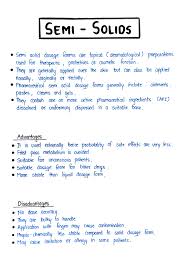 SEMI - SOLIDS
Semi solid dosage forms are topical (dermatological) preparations
used for therapeutic, protective or cosmetic function.
They are generally applied over the skin but can also be applied
nasally, vaginally or rectally.
Pharmaceutical semi solid dosage forms generally include ointments,
pastes, creams and gels.
They contain one or more active pharmaceutical ingredients (API)
dissolved or uniformly dispersed in a suitable base.
Advantages
It is used externally hence probability of side effects are very less.
First pass metabolism is avoided.
Suitable for unconscious patients.
Suitable dosage form for bitter drugs.
More stable than liquid dosage form.
Disadvantages
No dose accuracy
They are bulky to handle.
Application with finger may cause contamination.
Physico-chemically less stable compared to solid dosage form.
May cause irritation or allergy in some patients.